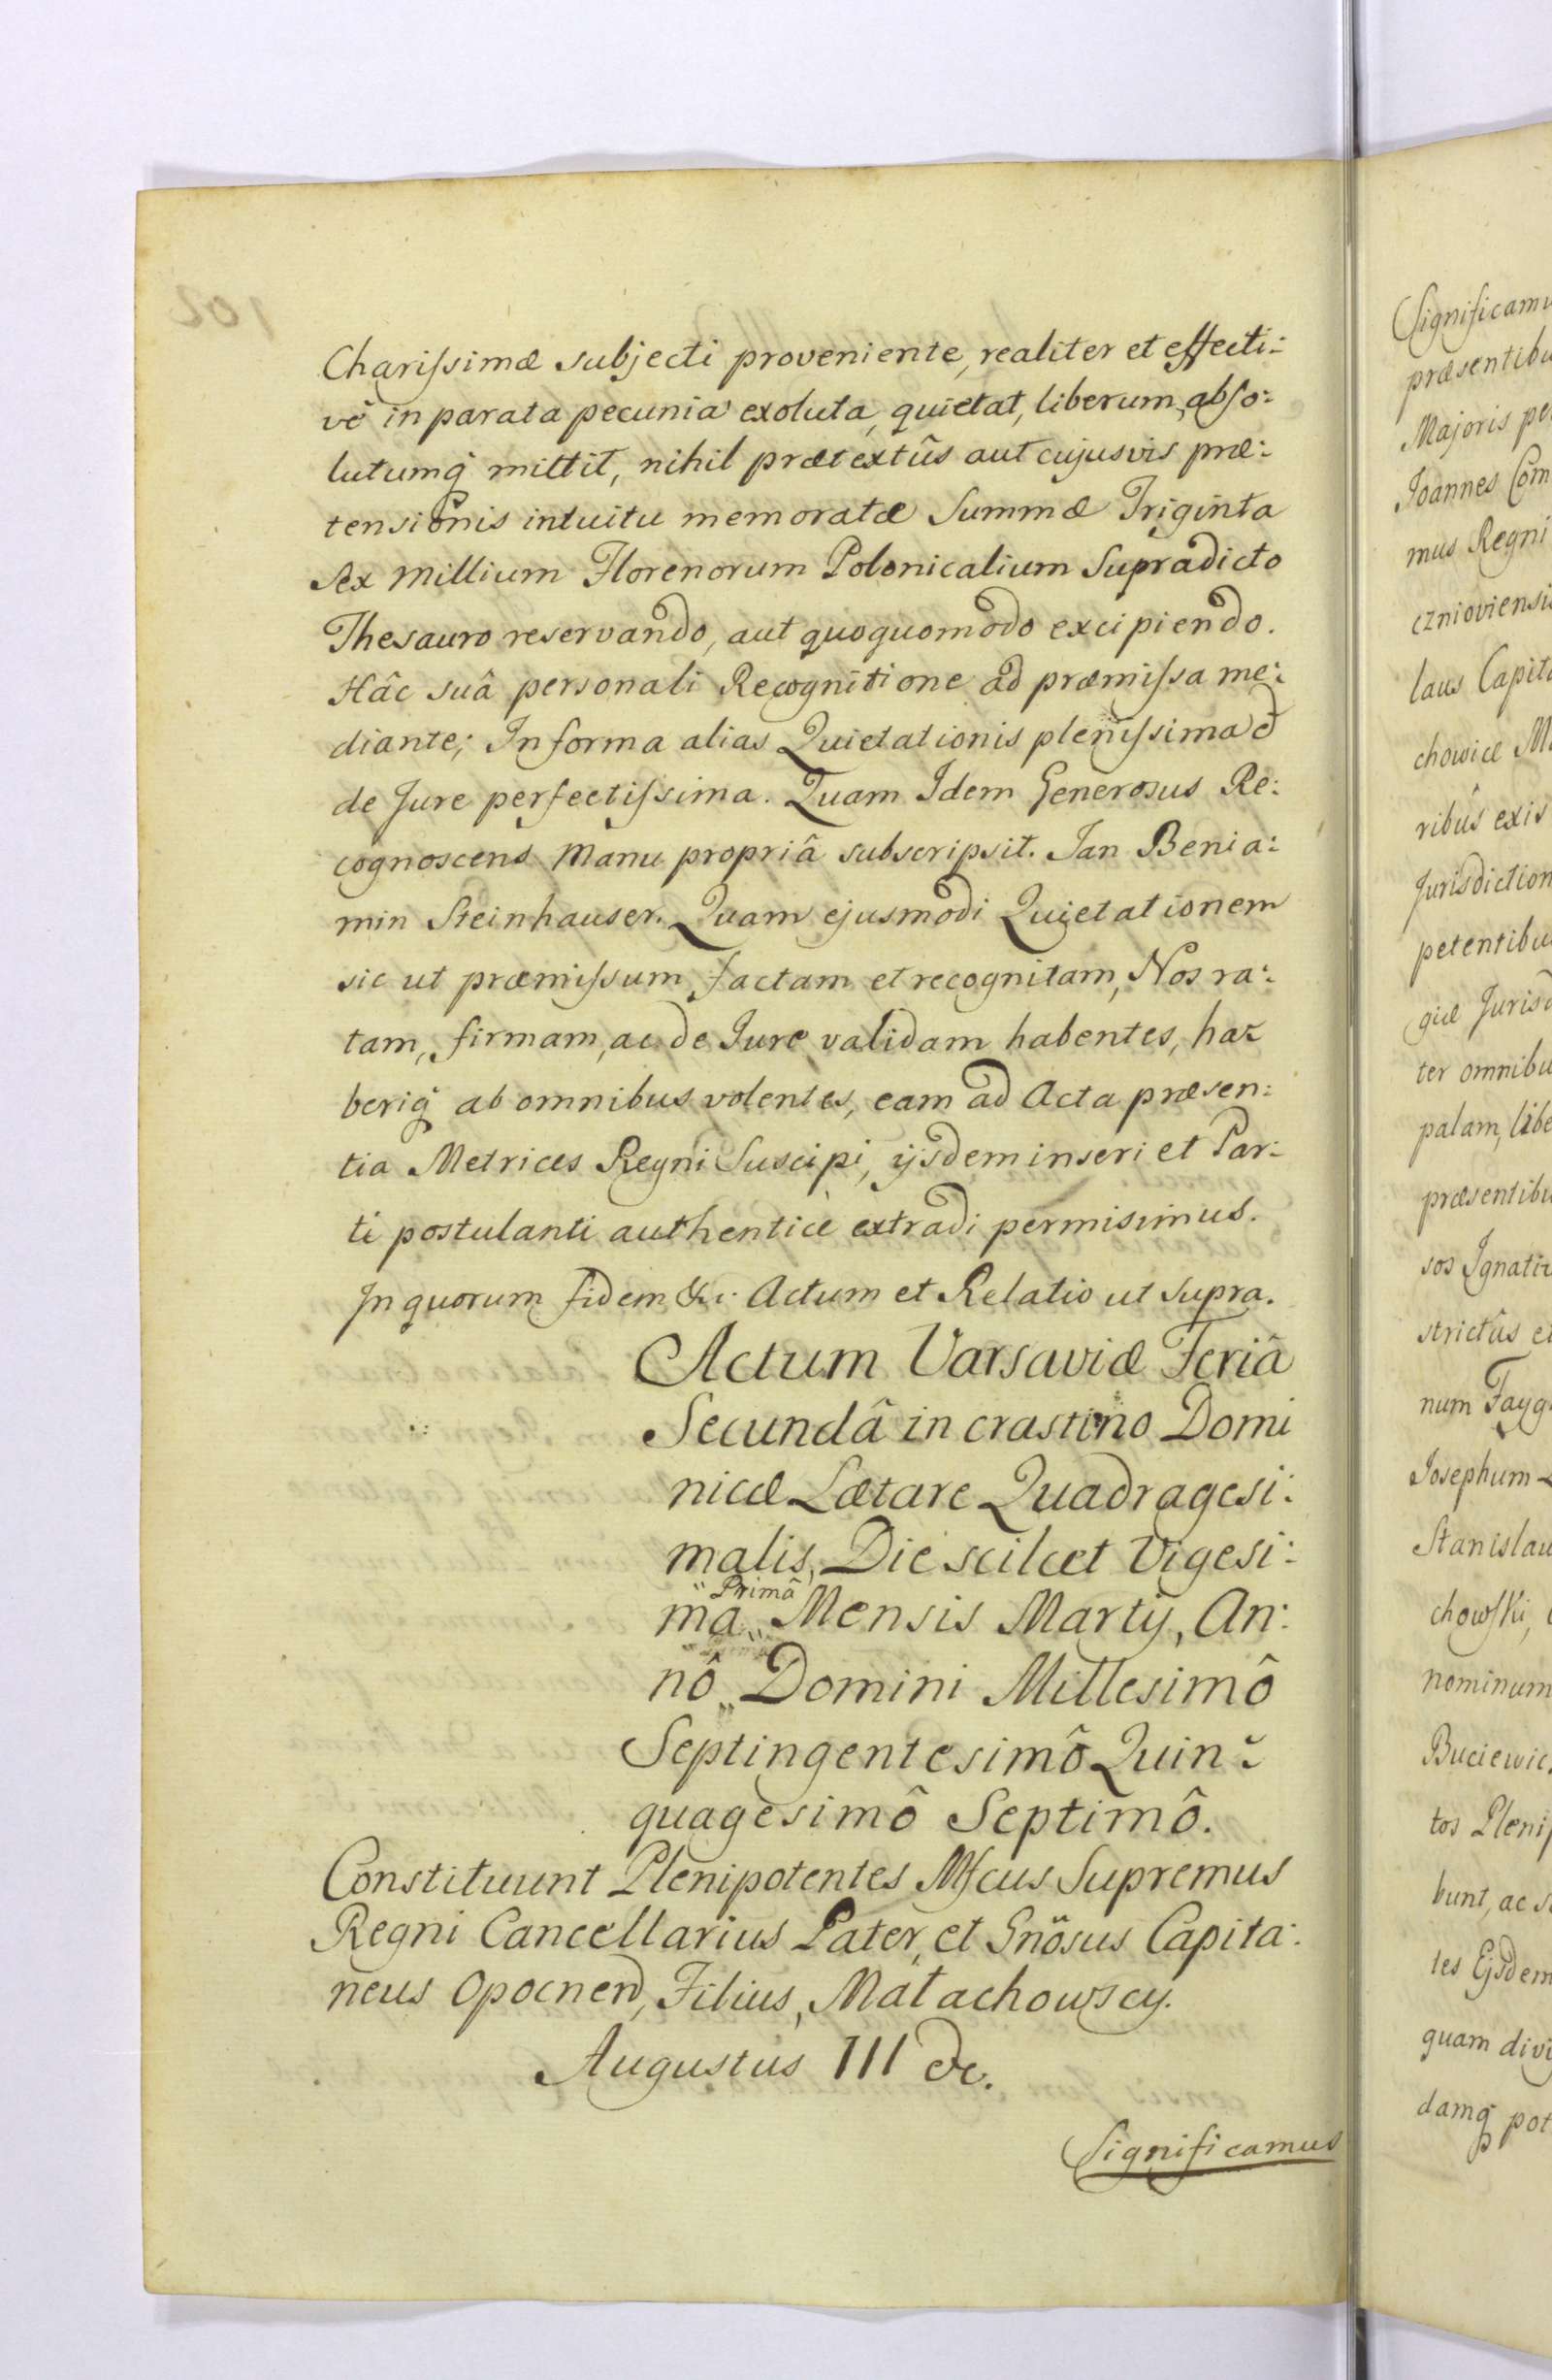 Charissimæ subjecti proveniente, realiter et effecti:
vè in parata pecunia exoluta, quietat, liberum, abso:
lutumq̀ mittit, nihil prætextûs aut cujusvis præ:
tensionis intuitu memoratæ Summæ Triginta
Sex Millium Florenorum Polonicalium Supradicto
Thesauro reservando, aut quoquomodo excipiendo.
Hâc suâ personali Recognitione ad præmissa me:
diante; In forma alias Quietationis plenissima &
de Jure perfectissima. Quam Idem Generosus Re:
cognoscens Manu propriâ subscripsit. Jan Benia:
min Steinhauser. Quam ejusmodi Quietationem
sic ut præmissum, factam et recognitam, Nos ra:
tam, firmam, ac de Jure validam habentes, ha:
beriq̀ ab omnibus volentes, eam ad Acta præsen:
tia Metrices Regni Suscipi, ijsdem inseri et Par:
ti postulanti authenticè extradi permisimus.
In quorum fidem &c. Actum et Relatio ut supra.
Actum Varsaviæ Feriâ
Secundâ in crastino Domi
nicæ Lætare Quadragesi:
malis, Die scilcet Vigesi:
Primâ
ma Mensis Martij, An:
nô Domini Millesimô
Septingentesimô Quin:
quagesimô Septimô.
Constituunt Plenipotentes Mfcus Supremus
Regni Cancellarius Pater, et Gnösus Capita:
neus Opocnen, Filius, Małachowscy.
Augustus III &c.
Significamus
Significamu
præsentibu
Majoris pe
Joannes Com
mus Regni
cznioviensis
laus Capita
chowice Ma
ribûs exis
Jurisdiction
petentibu
giæ Jurisd
ter omnibu
palam, libe
præsentibu
sos Ignati
strictûs et
num Fayg
Josephum
Stanislau
chowski,
nominum
Buciewic
tos Plenip
bunt, ac s
tes Ejsdem
quam divi
damq̀ pot